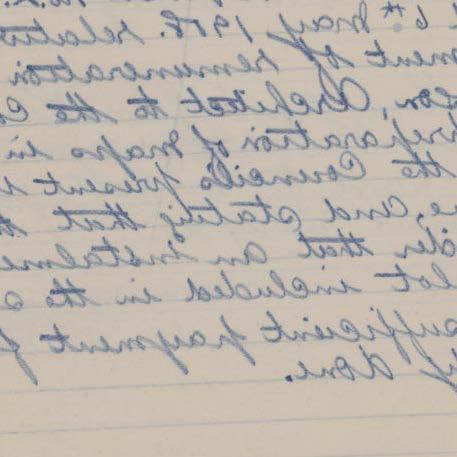 6th May 1918. relativ
ment of remuneration
son, Architect to the Co
reparation of maps in
the Council's present
and stating that
der that an instalme
lot included in the
sufficient payment f
y done.